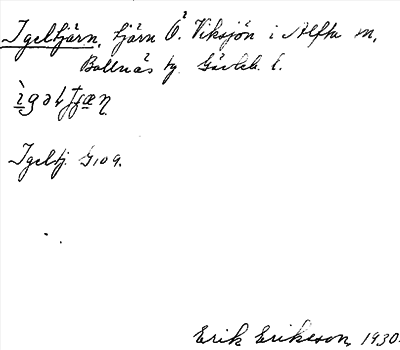 Igeltjärn, tjärn Ö. Viksjön i Alfta sn,
Bollnäs tg. Gävleb. l.
Igeltj. G109.
Erik Erikson, 1930.